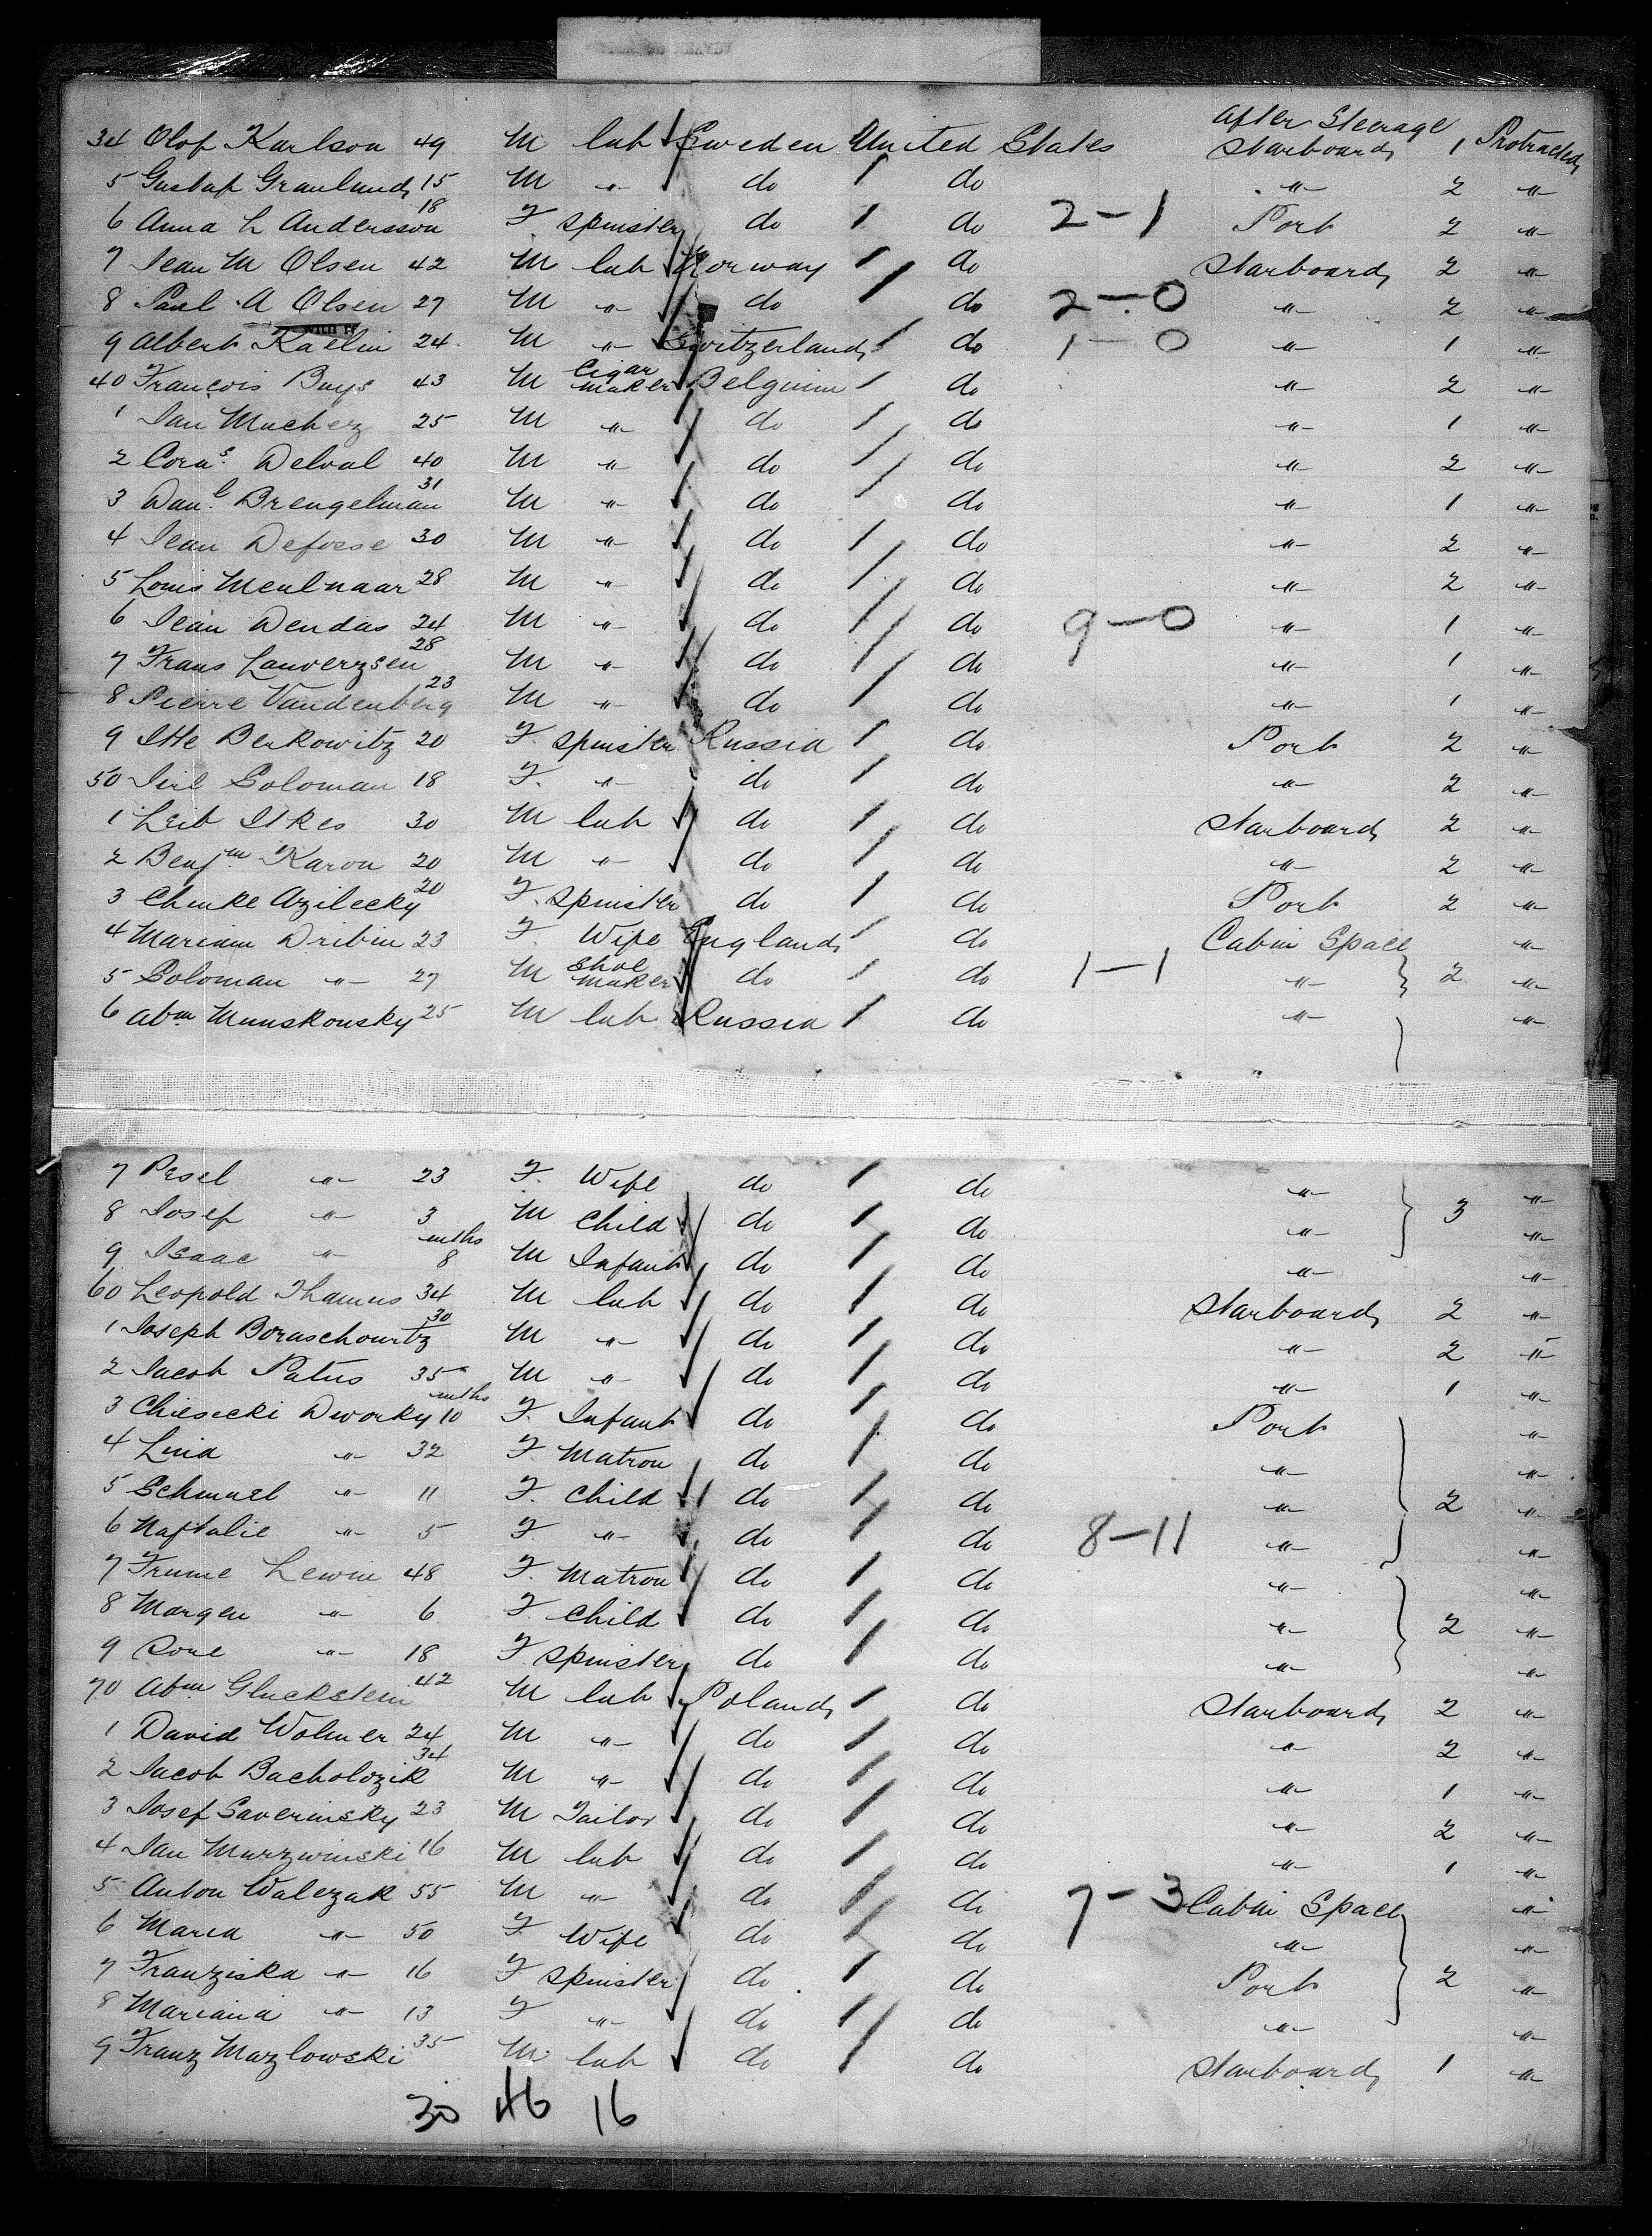 After Steerage
34 Olof Karlson 49 M lab Sweden United States Starboard 1 Protracted
5 Gustaf Granlund 15 M " do do " 2 "
6 Anna L Andersson 18 F. Spinster do do 2-1 Port 2 "
7 Jean M Olsen 42 M lab Norway do Starboard 2 "
8 Paul A Olsen 27 M " do do 2-0 " 2 "
9 Albert Kaelin 24 M " Switzerland do 1-0 " 1 "
40 François Buys 43 M Cigar Maker Belguim do " 2 "
1 Jan Mucherz 25 M " do do " 1 "
2 Corn.s Delval 40 M " do do " 2 "
3 Dan.l Brengelman 31 M " do do " 1 "
4 Jean Defosse 30 M " do do " 2 "
5 Louis Meulnaar 28 M " do do " 2 "
6 Jean Dendas 24 M " do do 9-0 " 1 "
7 Frans Lauverzsen 28 M " do do " 1 "
8 Pierre Vandenberg 23 M " do do " 1 "
9 Itte Berkowitz 20 F. Spinster Russia do Port 2 "
50 Soloman 18 F. " do do " 2 "
1 Leib Itkes 30 M lab do do Starboard 2 "
2 Benj.m Karon 20 M " do do " 2 "
3 Chinke Azilecky 20 F. Spinster do do Port 2 "
4 Mariam Dribin 23 F. Wife England do Cabin Space "
5 Soloman " 27 M Shoe Maker do do 1-1 " 2 "
6 Abm Munskonsky 25 M lab Russia do " "
7 Pesel " 23 F. Wife do do " "
8 Josef " 3 M Child do do " 3 "
9 Isaac " mths 8 M Infant do do " "
60 Leopold Thamus 34 M lab do do Starboard 2 "
1 Joseph Boraschowitz 30 M " do do " 2 "
2 Jacob Patus 35 M " do do " 1 "
3 Chiesecki Dworky mths 10 F. Infant do do Port "
4 Lina " 32 F. Matron do do " "
5 Schmuel " 11 F. Child do do " 2 "
6 Naftalie " 5 F. " do do 8-11 " "
7 Frume Lewin 48 F. Matron do do " "
8 Margen " 6 F. Child do do " 2 "
9 Sore " 18 F. Spinster do do " "
70 Abm Gluckstein 42 M lab Poland do Starboard 2 "
1 David Wolmer 24 M " do do " 2 "
2 Jacob Bacholozik 34 M " do do " 1 "
3 Josef Saverinsky 23 M Tailor do do " 2 "
4 Jan Murzwinski 16 M lab do do " 1 "
5 Anton Walezak 55 M " do do 7-3 Cabin Space "
6 Maria " 50 F. Wife do do " "
7 Franziska " 16 F Spinster do do Port 2 "
8 Mariana " 13 F " do do " "
9 Franz Mazlowski 35 M lab do do Starboard 1 "
30 46 16